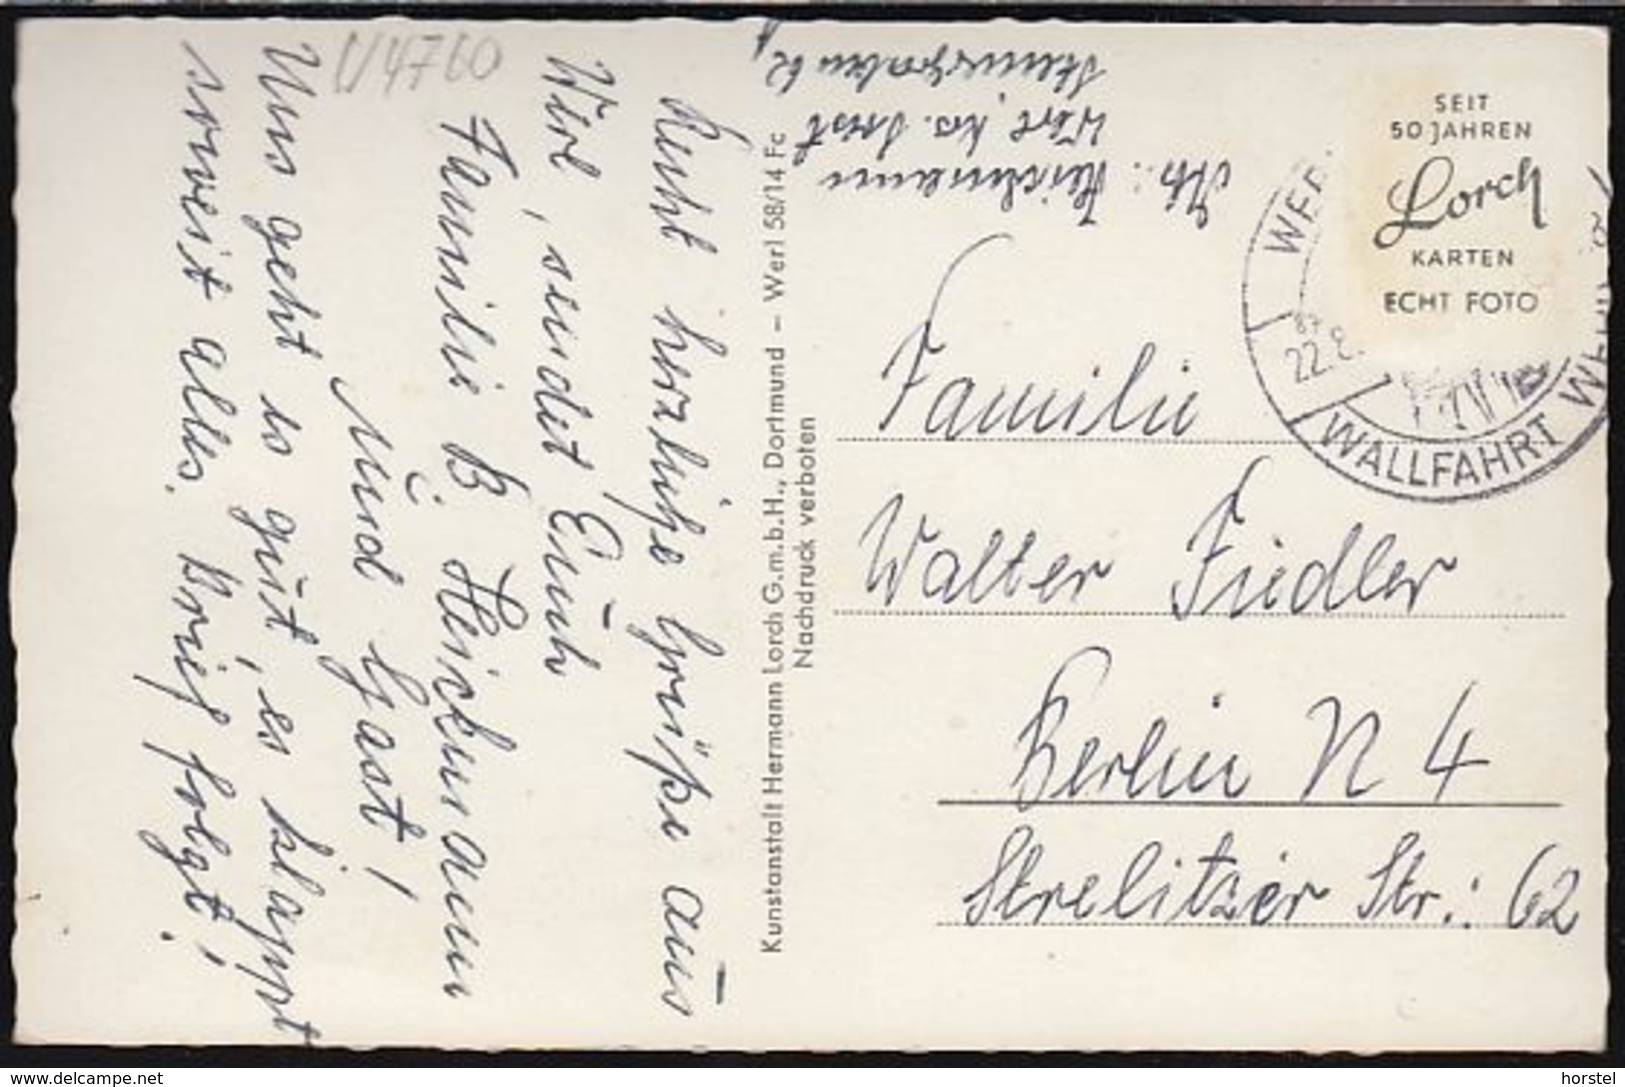 V4760
Recht herzliche Grüße aus
Werl, sendet Euch
Familie B Heickmann
und Gast!
Uns geht es gut, es klappt
soweit alles. Brief folgt!
Kunstanstalt Hermann Lorch G.m.b.H., Dortmund – Werl 58/14 Fc
Nachdruck verboten
Abs.: Heickmann
Werl, Krs. Soest
62
SEIT
50 JAHREN
Lorch
KARTEN
ECHT FOTO
WER
22.8.
WALLFAHRT
Familie
Walter Fiedler
Berlin N 4
Strelitzer Str.: 62
www.delcampe.net
horstel